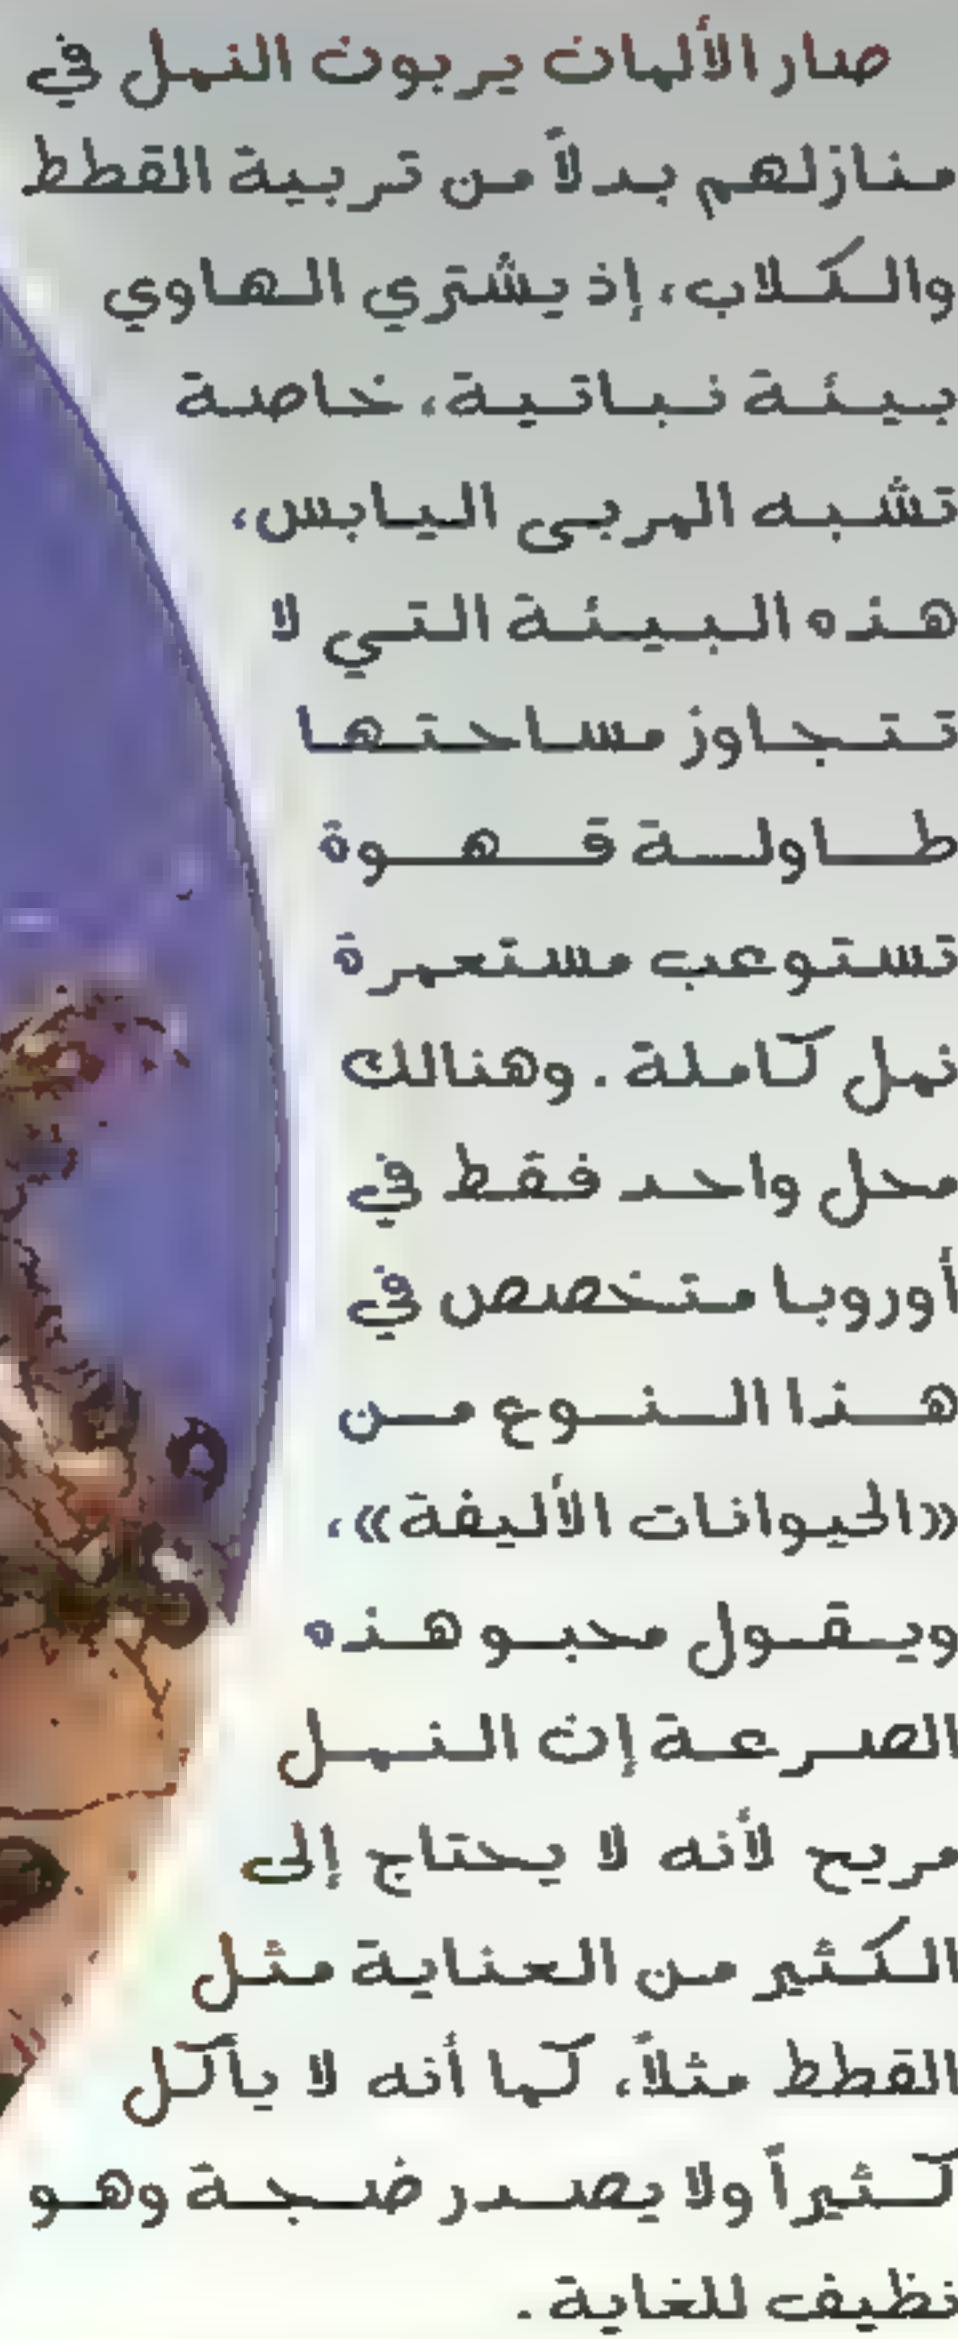 صار الألمان يربون النمل في
منازلهم بدلاً من تربية القطط
والكلاب، إذ يشتري الهاوي
بيئة نباتية، خاصة
تشبه المربى اليابس،
هذه البيئة التي لا
تتجاوز مساحتها
طاولة قهوة
تستوعب مستعمرة
نمل كاملة. وهنالك
محل واحد فقط في
أوروبا متخصص في
هذا النوع من
«الحيوانات الأليفة»،
ويقول محبو هذه
الصرعة إن النمل
مريح لأنه لا يحتاج إلى
الكثير من العناية مثل
القطط مثلاً، كما أنه لا يأكل
كثيراً ولا يصدر ضجة وهو
نظيف للغاية.